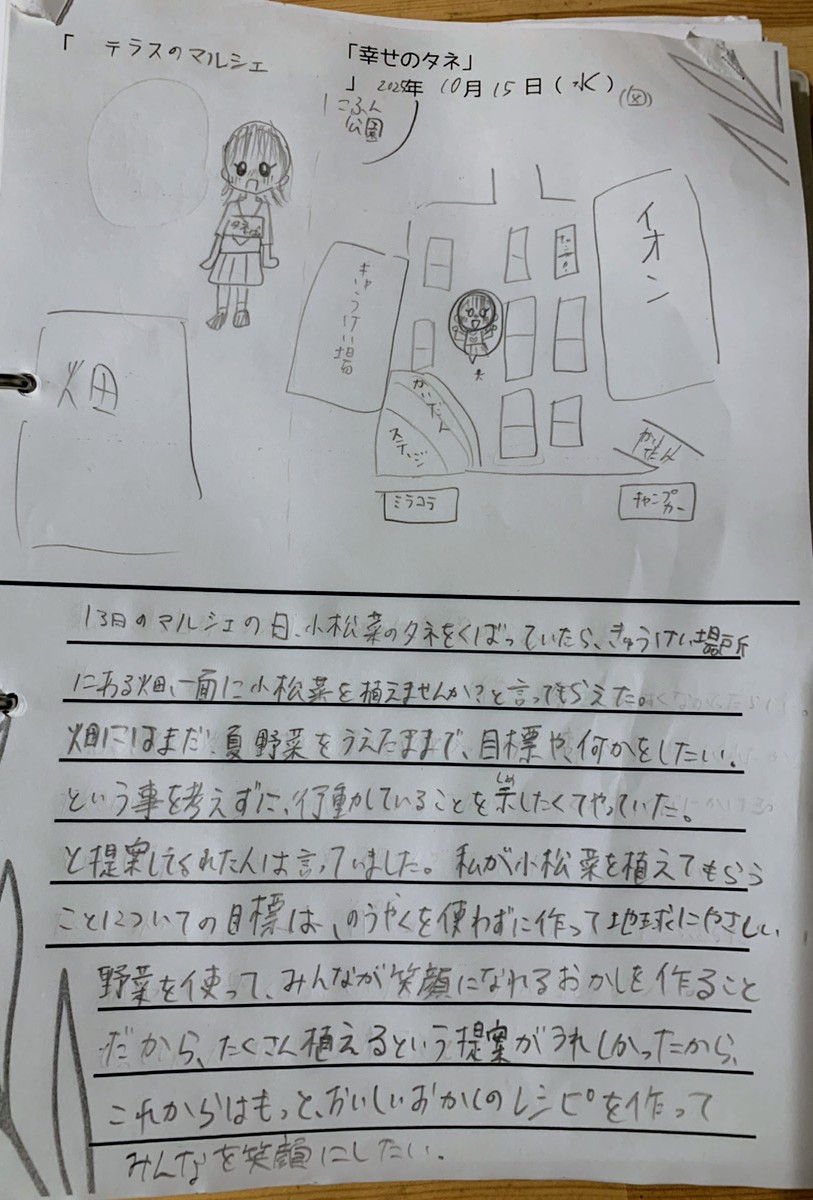 「 テラスのマルシェ
「幸せのタネ」
」 2025年 10月 15日 (水)
にふん
公園
タネ
畑
きゅうけい場所
イオン
かいだん
ステージ
かいだん
ミラコラ
キャンプ
カー
13日のマルシェの日、小松菜のタネをくばっていたら、きゅうけい場所
にある畑、一面に小松菜を植えませんか?と言ってもらえた。
畑にはまだ、夏野菜をうえたままで、目標や、何かをしたい。
という事を考えずに、行動していることを示(しめ)したくてやっていた。
と提案してくれた人は言っていました。私が小松菜を植えてもらう
ことについての目標は、のうやくを使わずに作って地球にやさしい
野菜を使って、みんなが笑顔になれるおかしを作ること
だから、たくさん植えるという提案がうれしかったから、
これからはもっと、おいしいおかしのレシピを作って
みんなを笑顔にしたい。